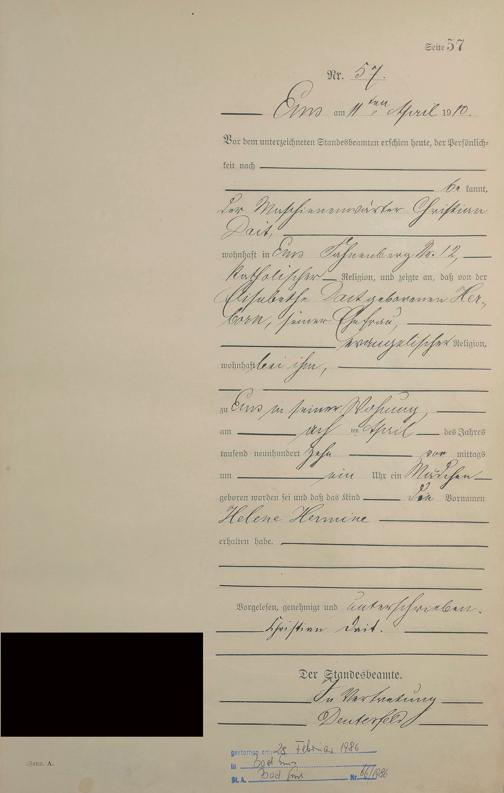 Seite 57
Nr. 57.
Ems am 11ten April 1910.
Vor dem unterzeichneten Standesbeamten erschien heute, der Persönlich-
keit nach
be kannt,
der Maschienenwärter Christian
Dait,
wohnhaft in Ems No. 12,
katholischer Religion, und zeigte an, daß von der
Elisabethe Dait geborenen Her-
born, seiner Ehefrau,
evangelischer Religion,
wohnhaft bei ihm,
zu Ems in seiner Wohung,
am ach ten April des Jahres
tausend neunhundert zehn vor mittags
um ein Uhr ein Mädchen
geboren worden sei und daß das Kind die Vornamen
Helene Hermine
erhalten habe.
Vorgelesen, genehmigt und unterschrieben.
Christian Dait.
Der Standesbeamte.
In Vertretung
gestorben am: 25 Februar 1986
in Bad Ems
St. A. Bad Ems Nr. 66/1986
Form. A.